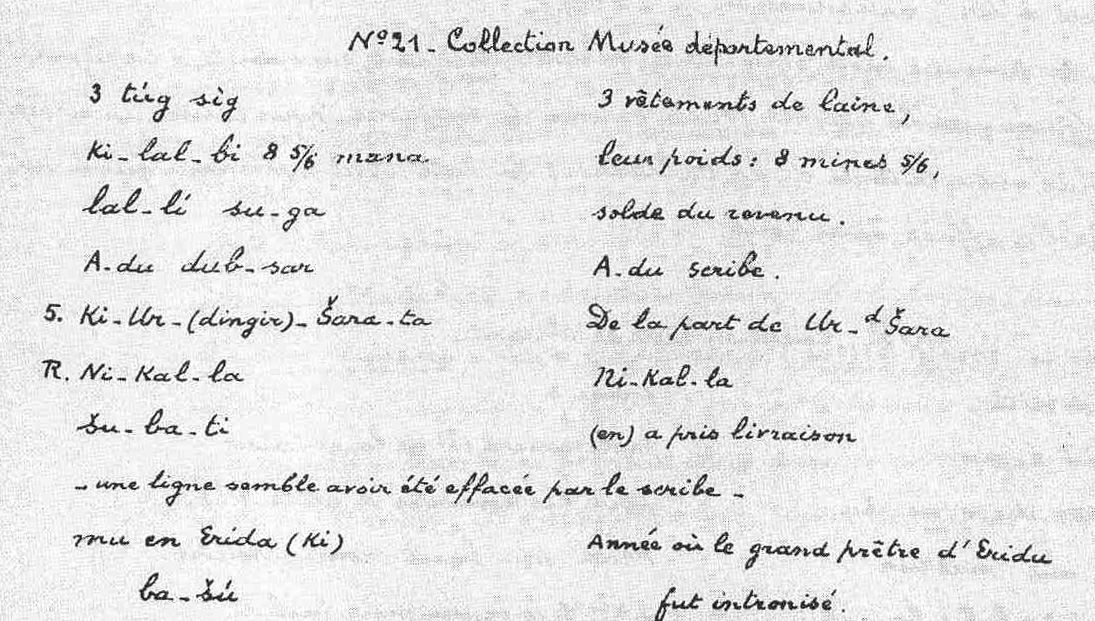 Nº 21 - Collection Musée départemental.
3 túg sìg 3 vêtements de laine,
Ki-lal-bi 8 5/6 mana leur poids : 8 mines 5/6,
lal-lí su-ga solde du revenu.
A-du dub-sar A-du scribe.
5. Ki-Ur-(dingir)-Šara-ta De la part de Ur-ᵈŠara
R. Ni-Kal-la Ni-Kal-la
šu-ba-ti (en) a pris livraison
- une ligne semble avoir été effacée par le scribe -
mu en Erida (Ki) Année où le grand prêtre d'Eridu
ba-šú fut intronisé.